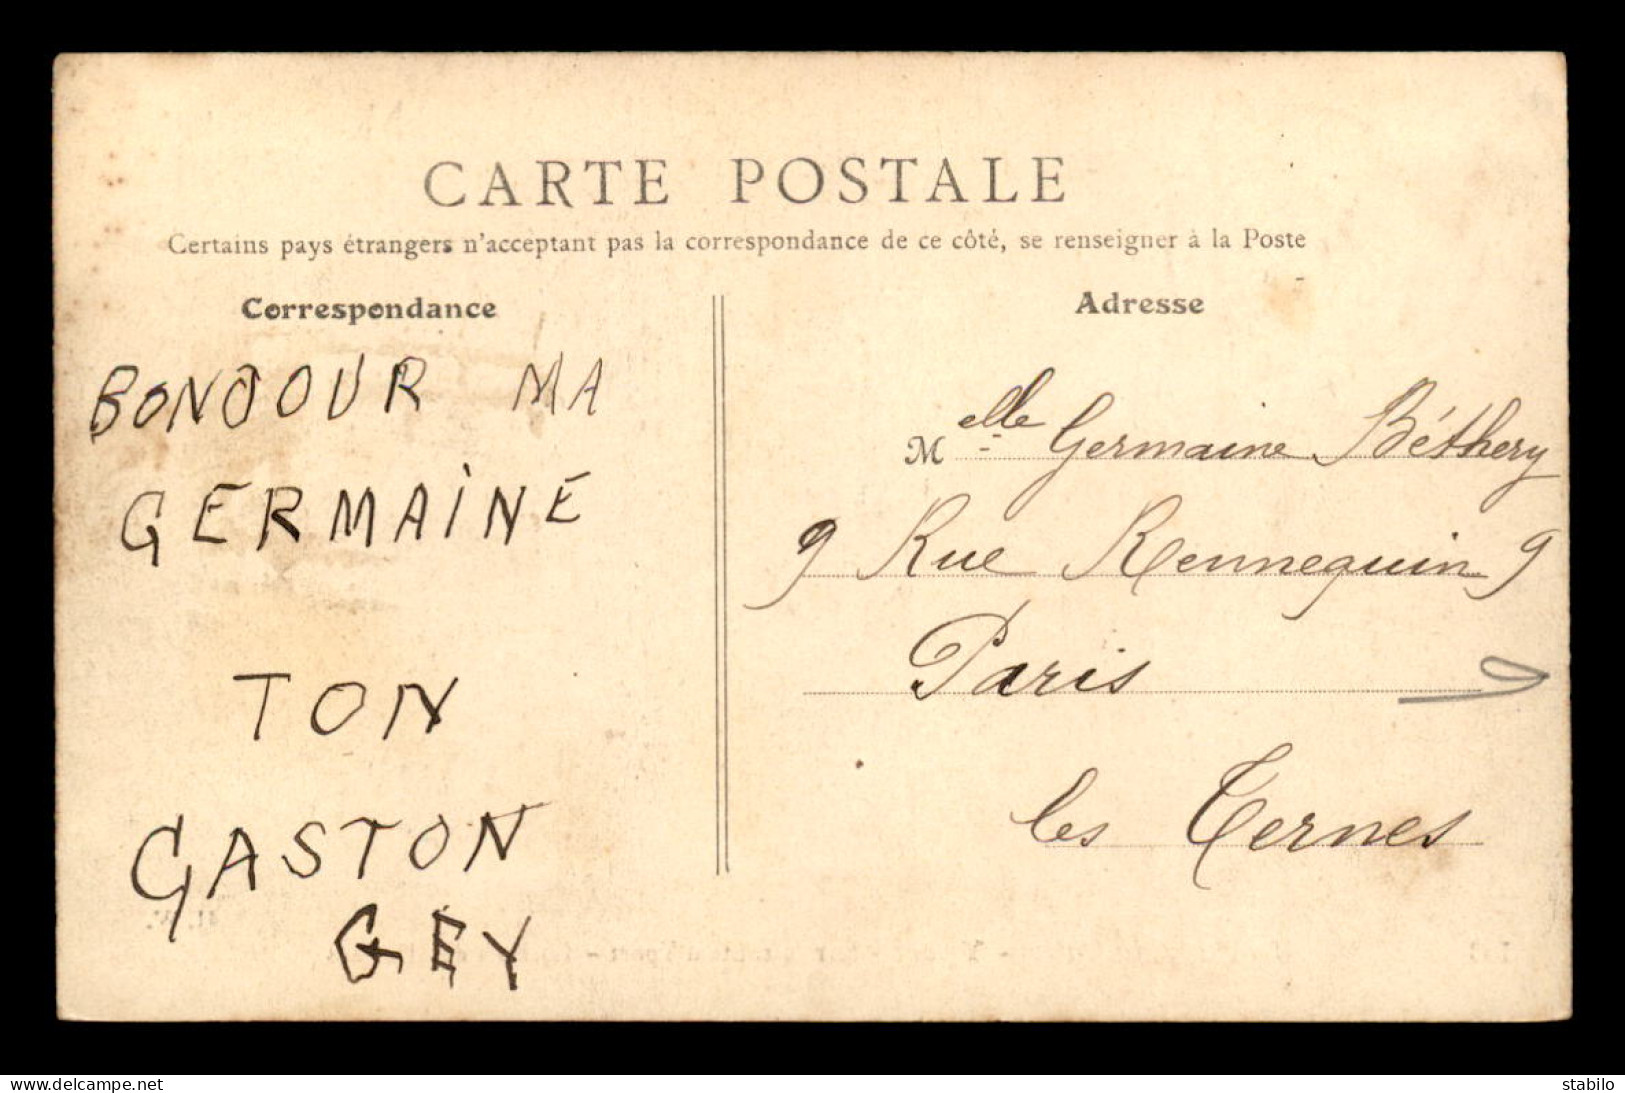 CARTE POSTALE
Certains pays étrangers n'acceptant pas la correspondance de ce côté, se renseigner à la Poste
Correspondance
BONJOUR MA
GERMAINE
TON
GASTON
GEY
Adresse
Melle Germaine Béthery
9 Rue Rennequin 9
Paris
les Ternes
www.delcampe.net
stabilo